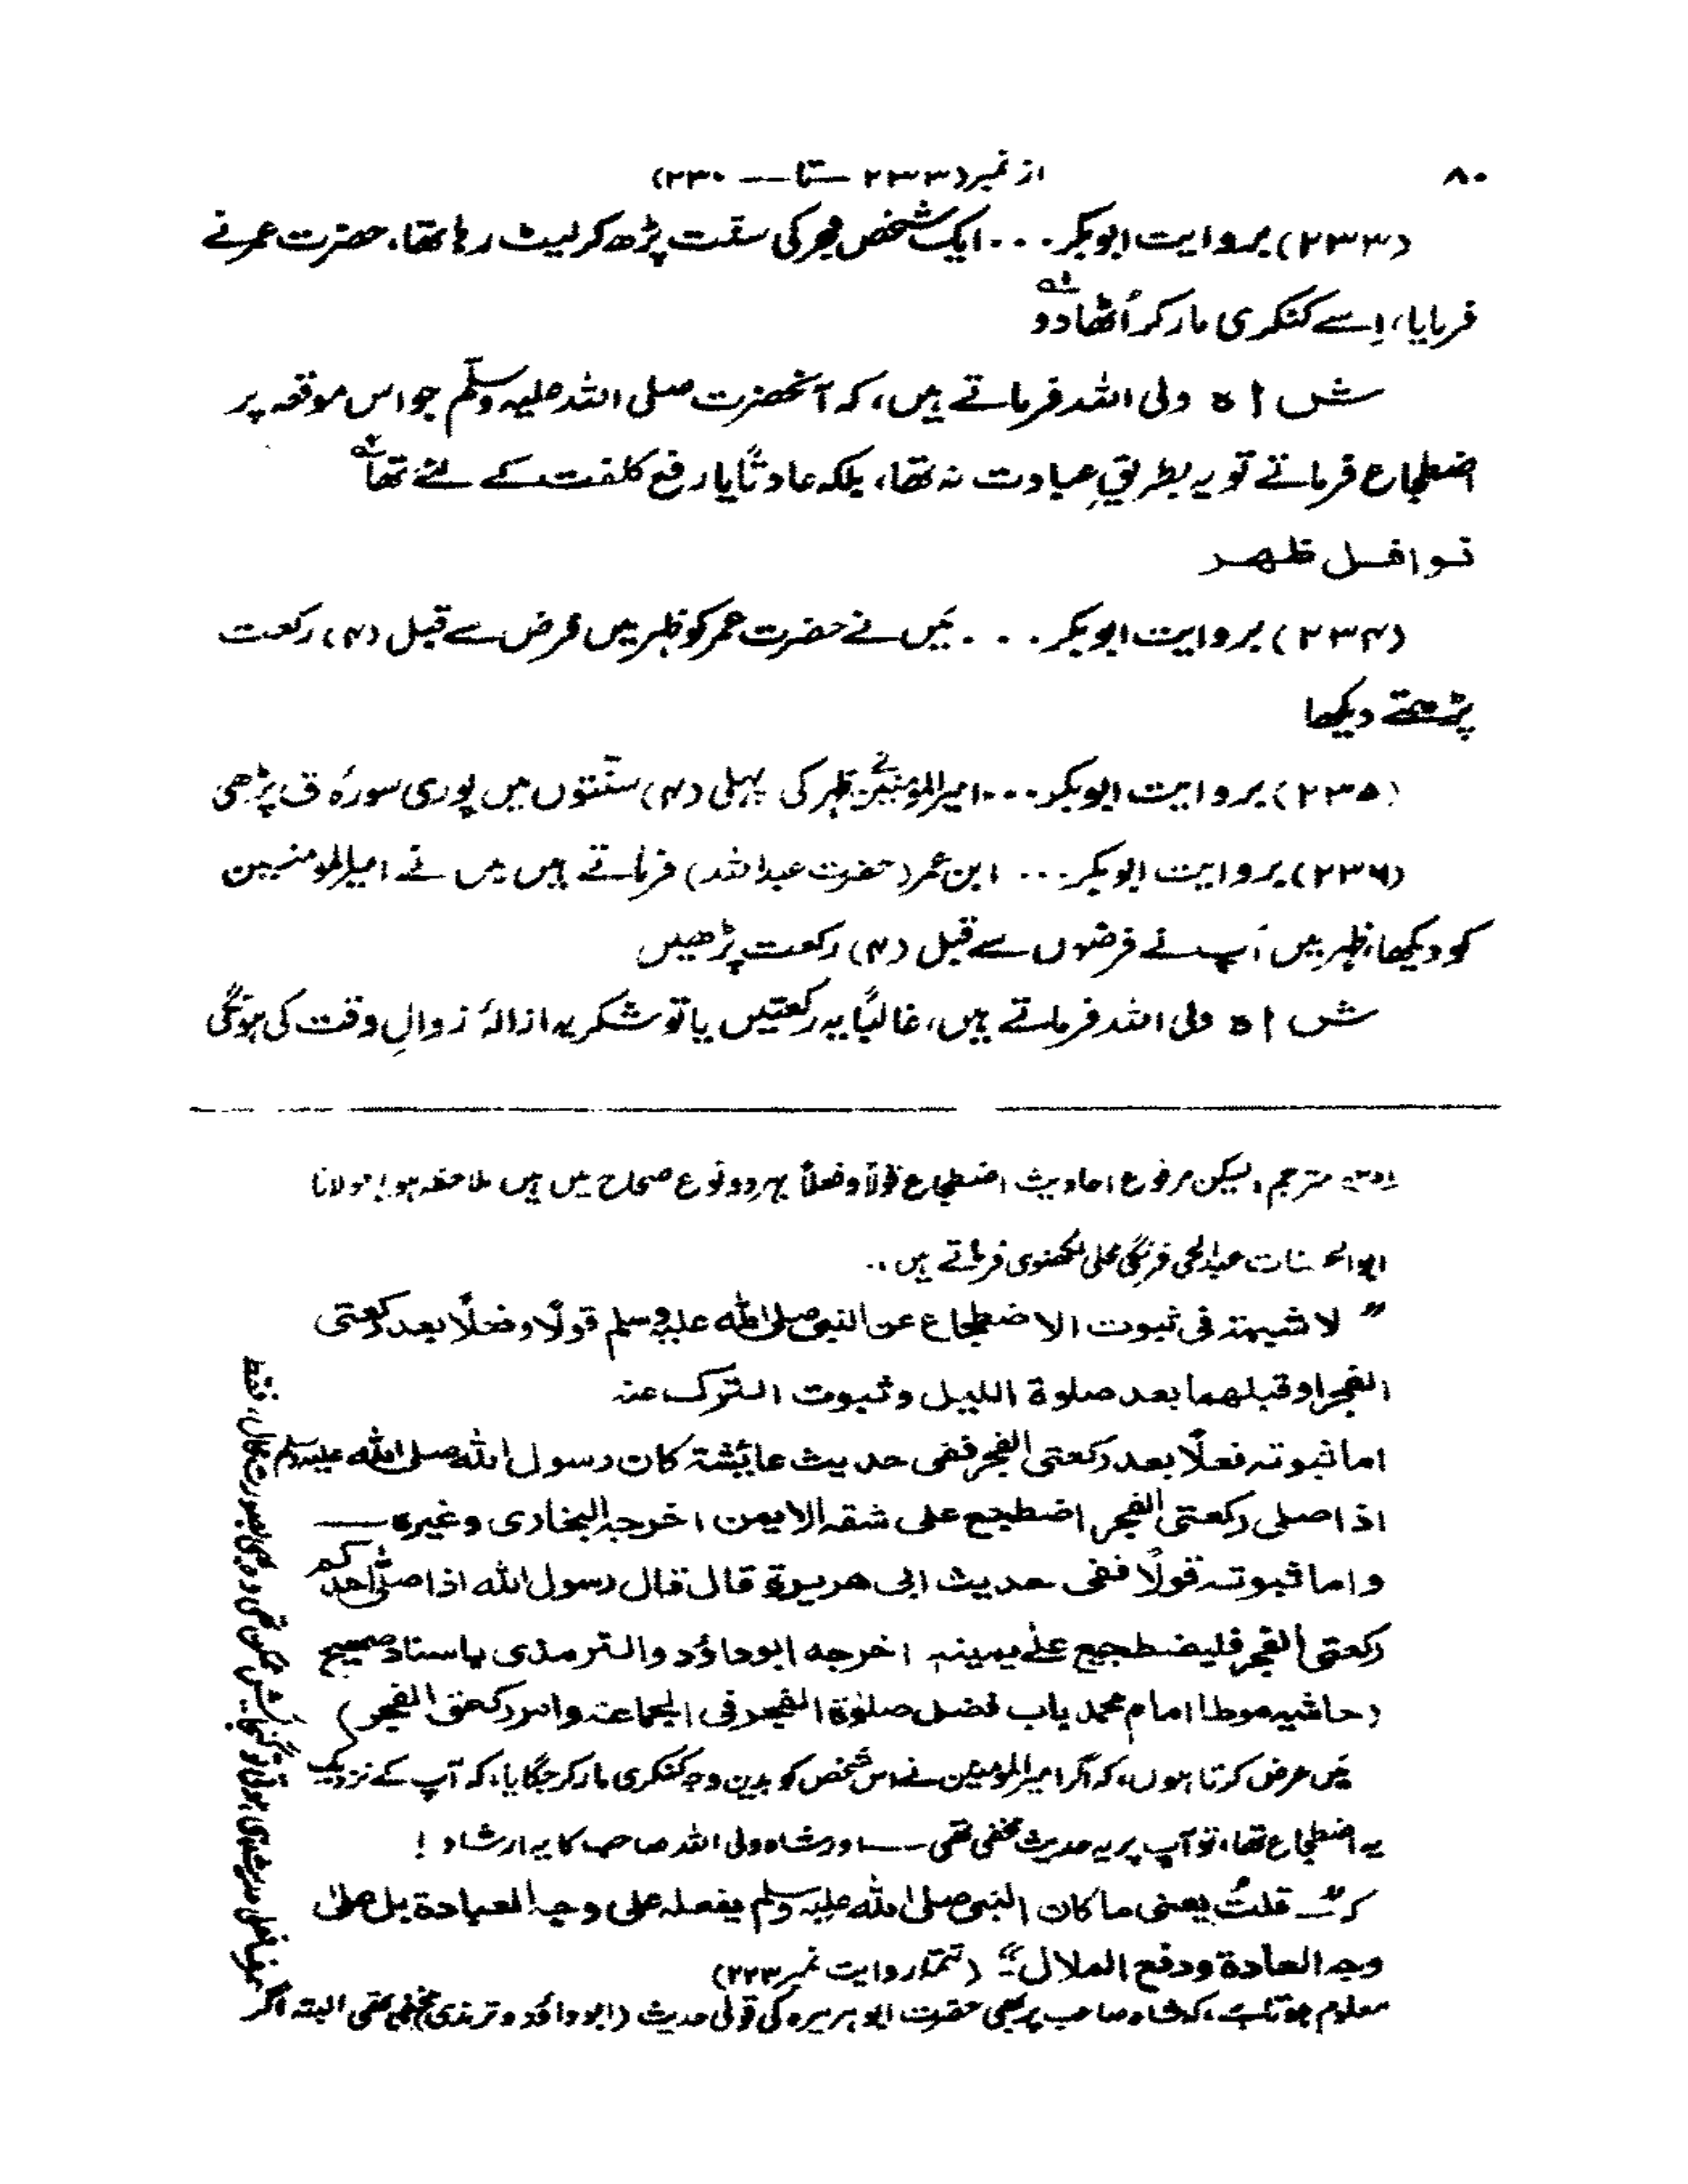 ۸۰
از نمبر (۲۳۳ — تا — ۲۳۰)
(۲۳۳) بروایت ابوبکر ... ایک شخص فجر کی سنت پڑھ کر لیٹ رہا تھا، حضرت عمر نے
فرمایا، اِسے کنکری مار کر اُٹھا دو
شاہ ولی اللہ فرماتے ہیں، کہ آنحضرت صلی اللہ علیہ وسلّم جو اس موقعہ پر
اضطجاع فرماتے تو یہ بطریقِ عبادت نہ تھا، بلکہ عادتًا یا رفع کلفت کے لئے تھا
نوافل ظہر
(۲۳۴) بروایت ابوبکر ... مَیں نے حضرت عمر کو ظہر میں فرض سے قبل (۴) رکعت
پڑھتے دیکھا
(۲۳۵) بروایت ابوبکر ... امیرالمؤمنین نے ظہر کی پہلی (۴) سنّتوں میں پوری سورۂ ق پڑھی
(۲۳۶) بروایت ابوبکر ... ابن عمر (حضرت عبداللہ) فرماتے ہیں میں نے امیرالمومنین
کو دیکھا، ظہر میں آپ نے فرضوں سے قبل (۴) رکعت پڑھیں
شاہ ولی اللہ فرماتے ہیں، غالبًا یہ رکعتیں یا تو شکریہ ازالۂ زوالِ وقت کی ہونگی
مترجم، لیکن مرفوع احادیث اضطجاع قولًا و فعلًا بہر دو نوع صحاح میں ہیں ملاحظہ ہو! مولانا
ابوالحسنات عبدالحی فرنگی محلی لکھنوی فرماتے ہیں ..
" لا شبهة فی ثبوت الاضطجاع عن النبی صلی الله علیه وسلم قولًا وفعلًا بعد رکعتی
الفجر او قبلهما بعد صلوة اللیل وثبوت الترک عنه
اما ثبوته فعلًا بعد رکعتی الفجر ففی حدیث عائشة کان رسول الله صلی الله علیه وسلم
اذا صلی رکعتی الفجر اضطجع علی شقه الایمن اخرجه البخاری وغیره —
واما ثبوته قولًا ففی حدیث ابی هریرة قال قال رسول الله اذا صلّی احدکم
رکعتی الفجر فلیضطجع علے یمینه اخرجه ابوداؤد والترمذی باسناد صحیح
(حاشیہ موطا امام محمد باب فضل صلوٰة الفجر فی الجماعة وامر رکعتی الفجر)
مَیں عرض کرتا ہوں، کہ اگر امیرالمومنین نے اس شخص کو بدین وجہ کنکری مار کر جگایا، کہ آپ کے نزدیک
یہ اضطجاع تھا، تو آپ پر یہ حدیث مخفی تھی — اور شاہ ولی اللہ صاحب کا یہ ارشاد !
کہ " قلتُ یعنی ما کان النبی صلی الله علیه وسلم یفعله علی وجه العبادة بل علیٰ
وجه العادة ودفع الملال " (تتمہ روایت نمبر ۲۲۳)
معلوم ہوتا ہے، کہ شاہ صاحب پر بھی حضرت ابوہریرہ کی قولی حدیث (ابوداؤد و ترمذی) مخفی تھی البتہ اگر